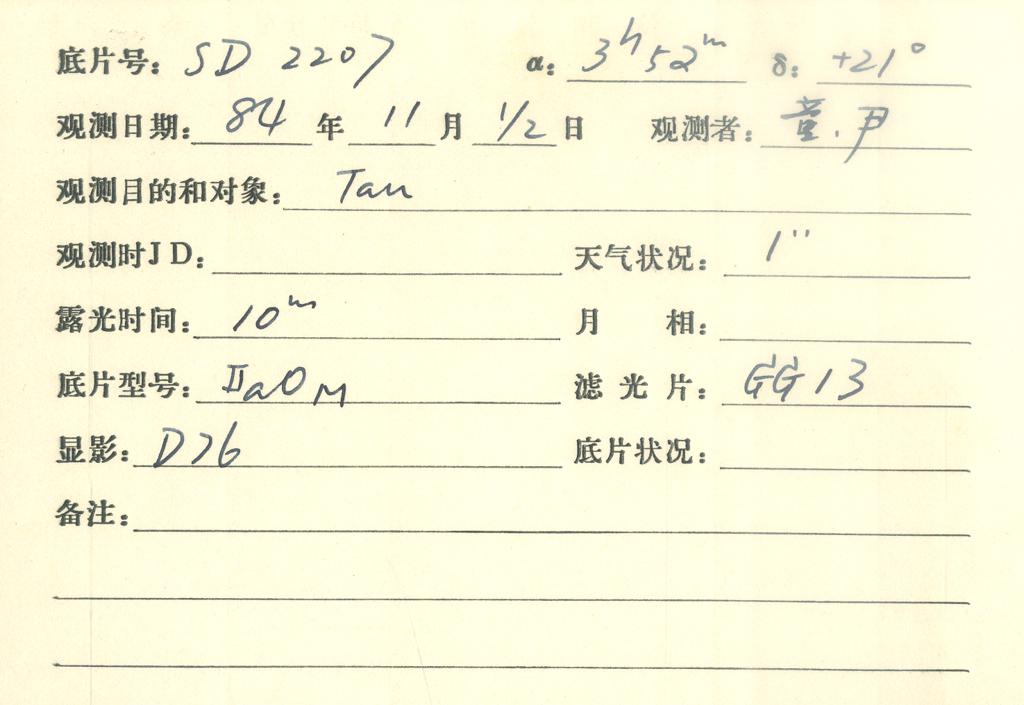 底片号: SD 2207 α: 3ʰ52ᵐ δ: +21°
观测日期: 84 年 11 月 1/2 日 观测者: 董.尹
观测目的和对象: Tau
观测时JD: 天气状况: 1″
露光时间: 10ᵐ 月 相:
底片型号: IIaO M 滤光片: GG13
显影: D76 底片状况:
备注: